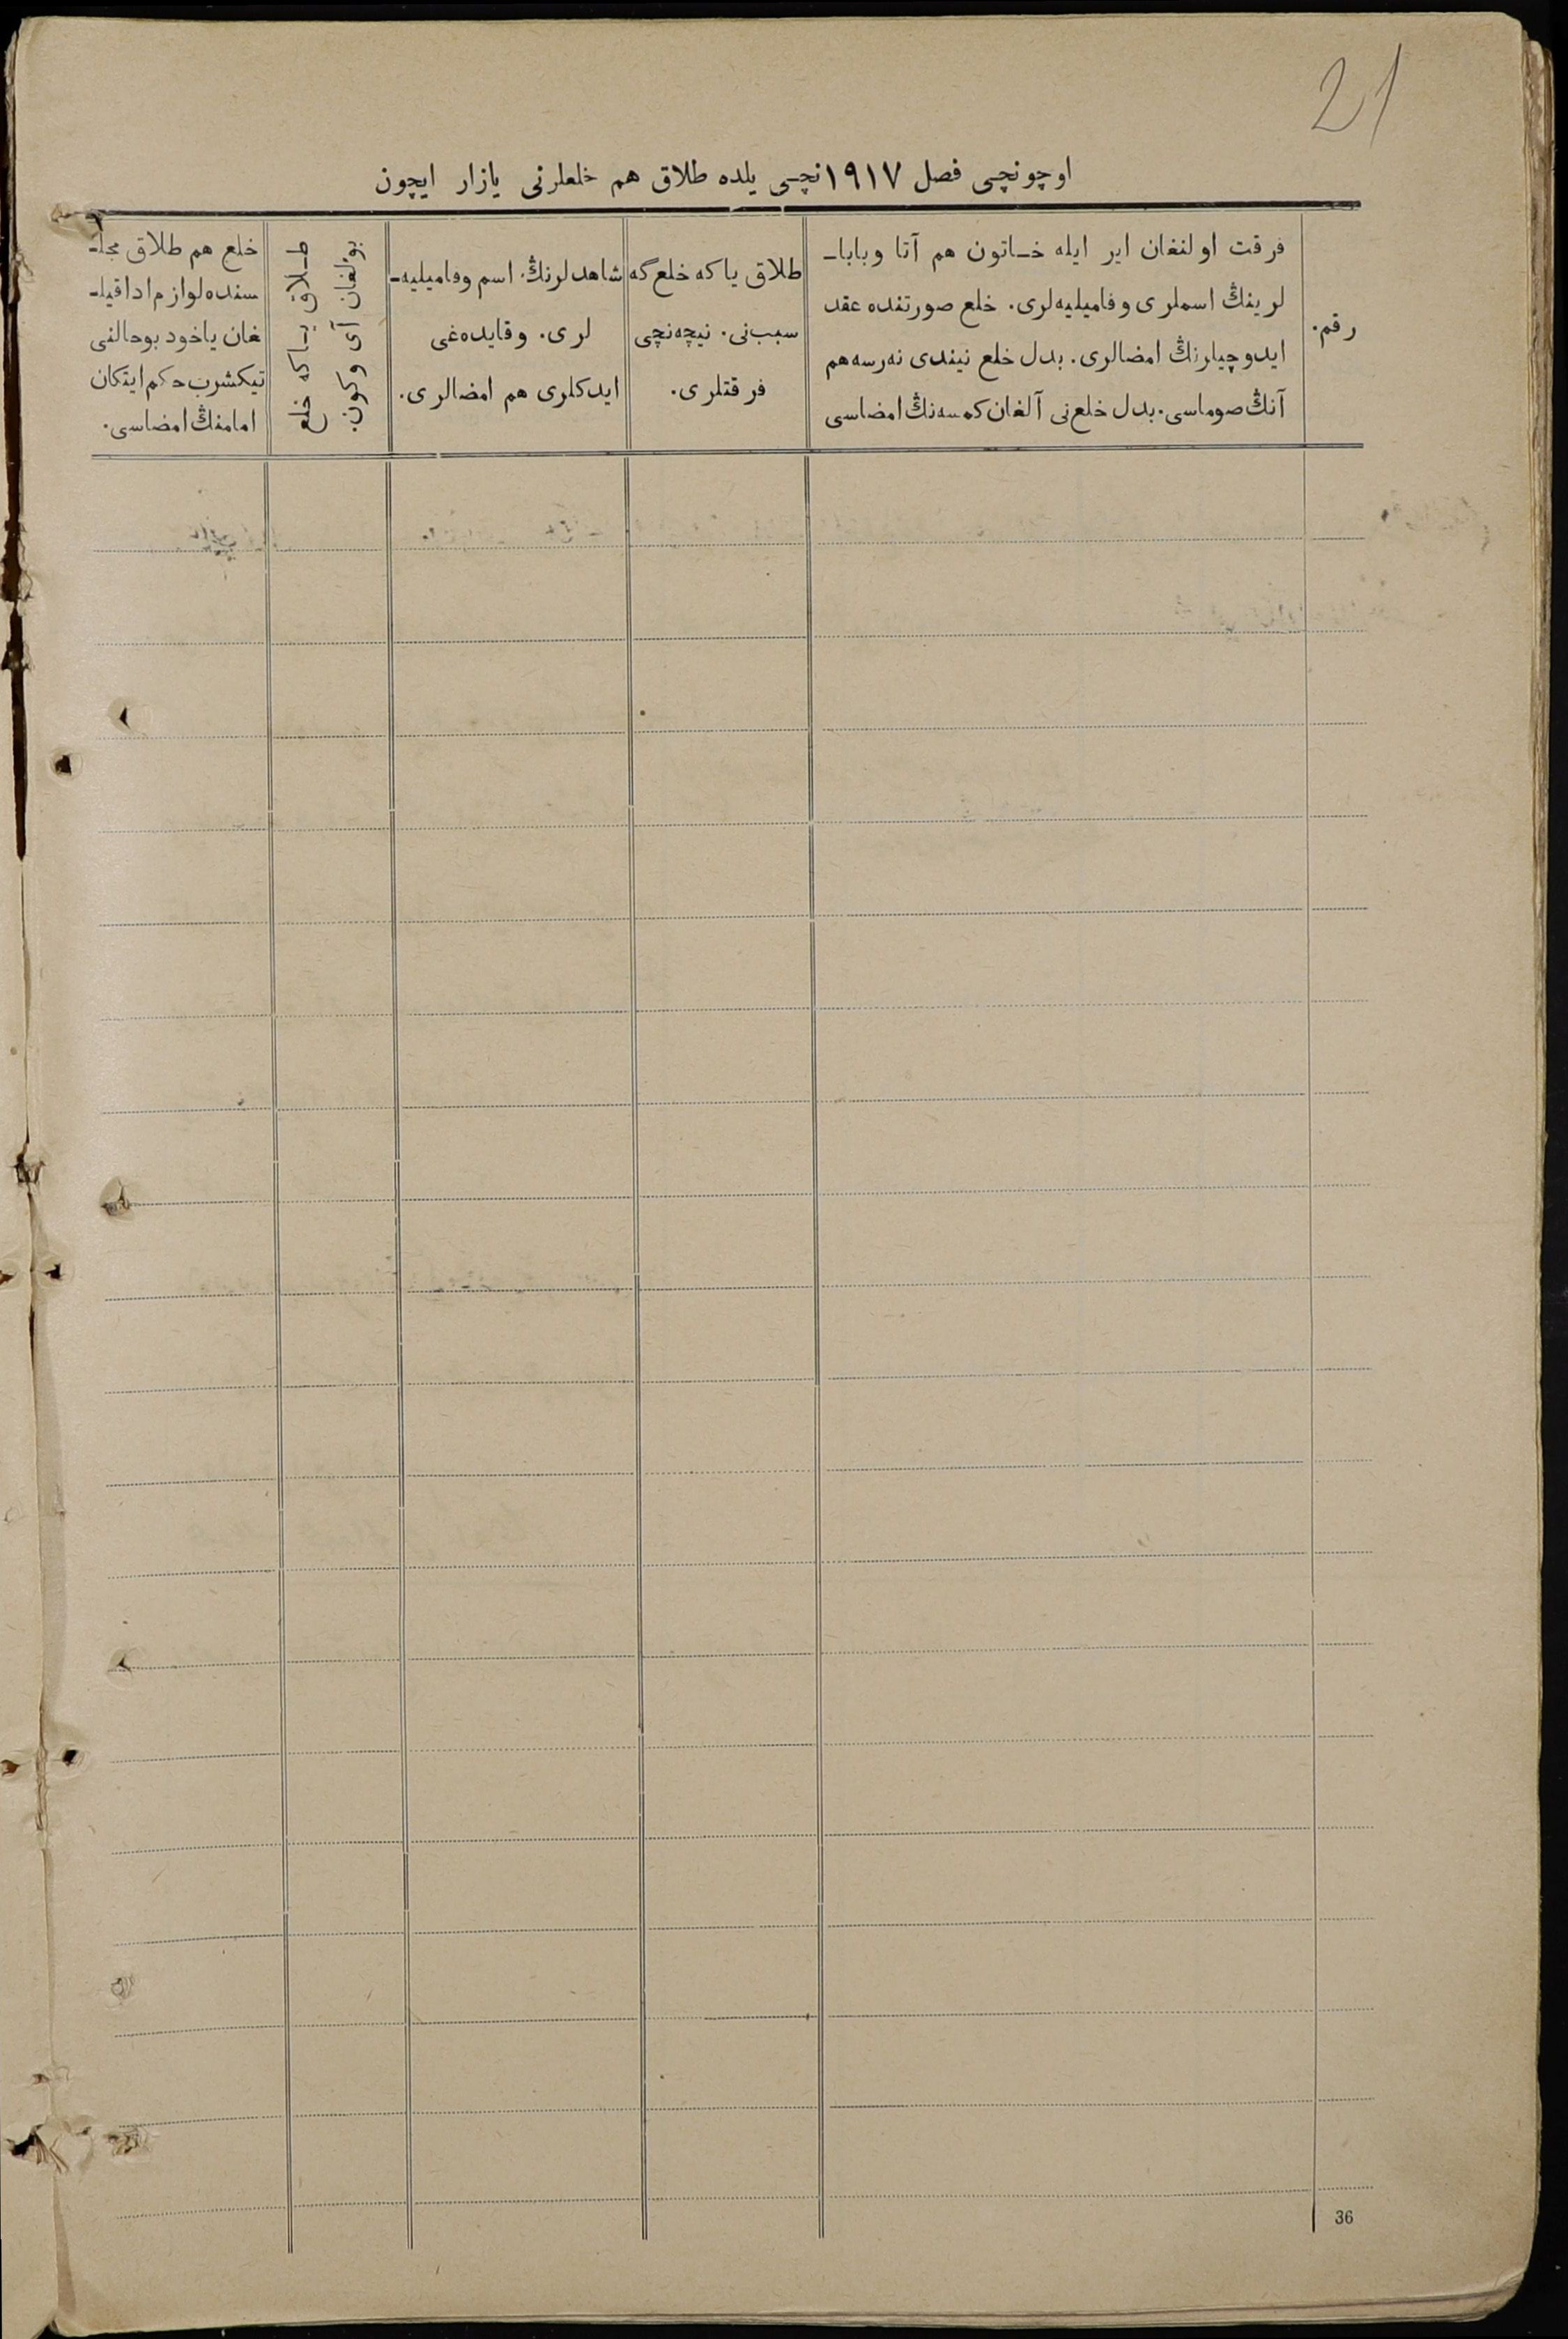 21
اوچونچی فصل ١٩١٧نچی یلده طلاق هم خلعلرنی یازار ایچون
رقم.
فرقت اولنغان ایر ایله خاتون هم آتا وبابا-
لرینڭ اسملری وفامیلیه‌لری. خلع صورتنده عقد
ایدوچیلرنڭ امضالری. بدل خلع نیندی نه‌رسه هم
آنڭ صوماسی. بدل خلع‌نی آلغان کمسه‌نڭ امضاسی
طلاق یا که خلع گه
سبب‌نی. نیچه‌نچی
فرقتلری.
شاهدلرنڭ اسم وفامیلیه-
لری. وقایده‌غی
ایدکلری هم امضالری.
طلاق یا که خلع
بولغان آی وکون.
خلع هم طلاق مجلـ
سنده لوازم ادا قیلـ
غان یاخود بو حالنی
تیکشرب حکم ایتکان
امامنڭ امضاسی.
36